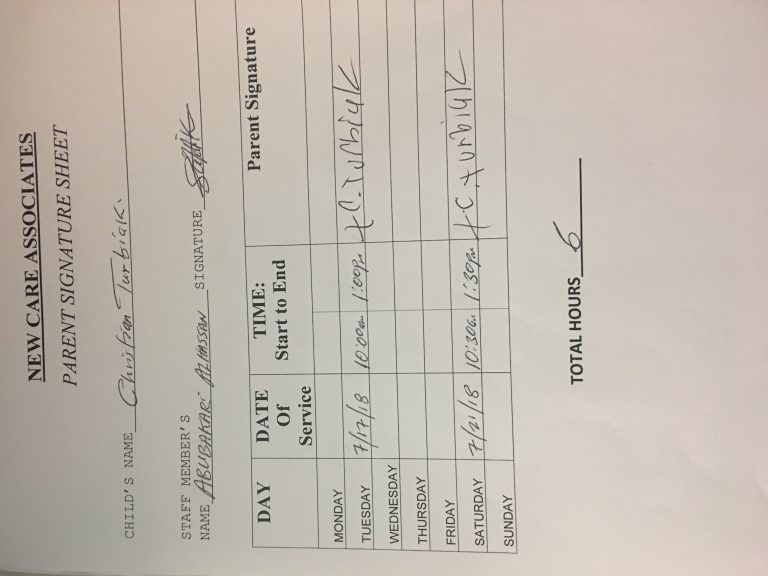 NEW CARE ASSOCIATES
PARENT SIGNATURE SHEET
CHILD'S NAME Christian Turbiak.
STAFF MEMBER'S
NAME ABUBAKARI ALHASSAN SIGNATURE
DAY DATE Of Service TIME: Start to End Parent Signature
MONDAY
TUESDAY 7/17/18 10:00am 1:00pm C. Turbiak
WEDNESDAY
THURSDAY
FRIDAY
SATURDAY 7/21/18 10:30am 1:30pm C. turbiak
SUNDAY
TOTAL HOURS 6